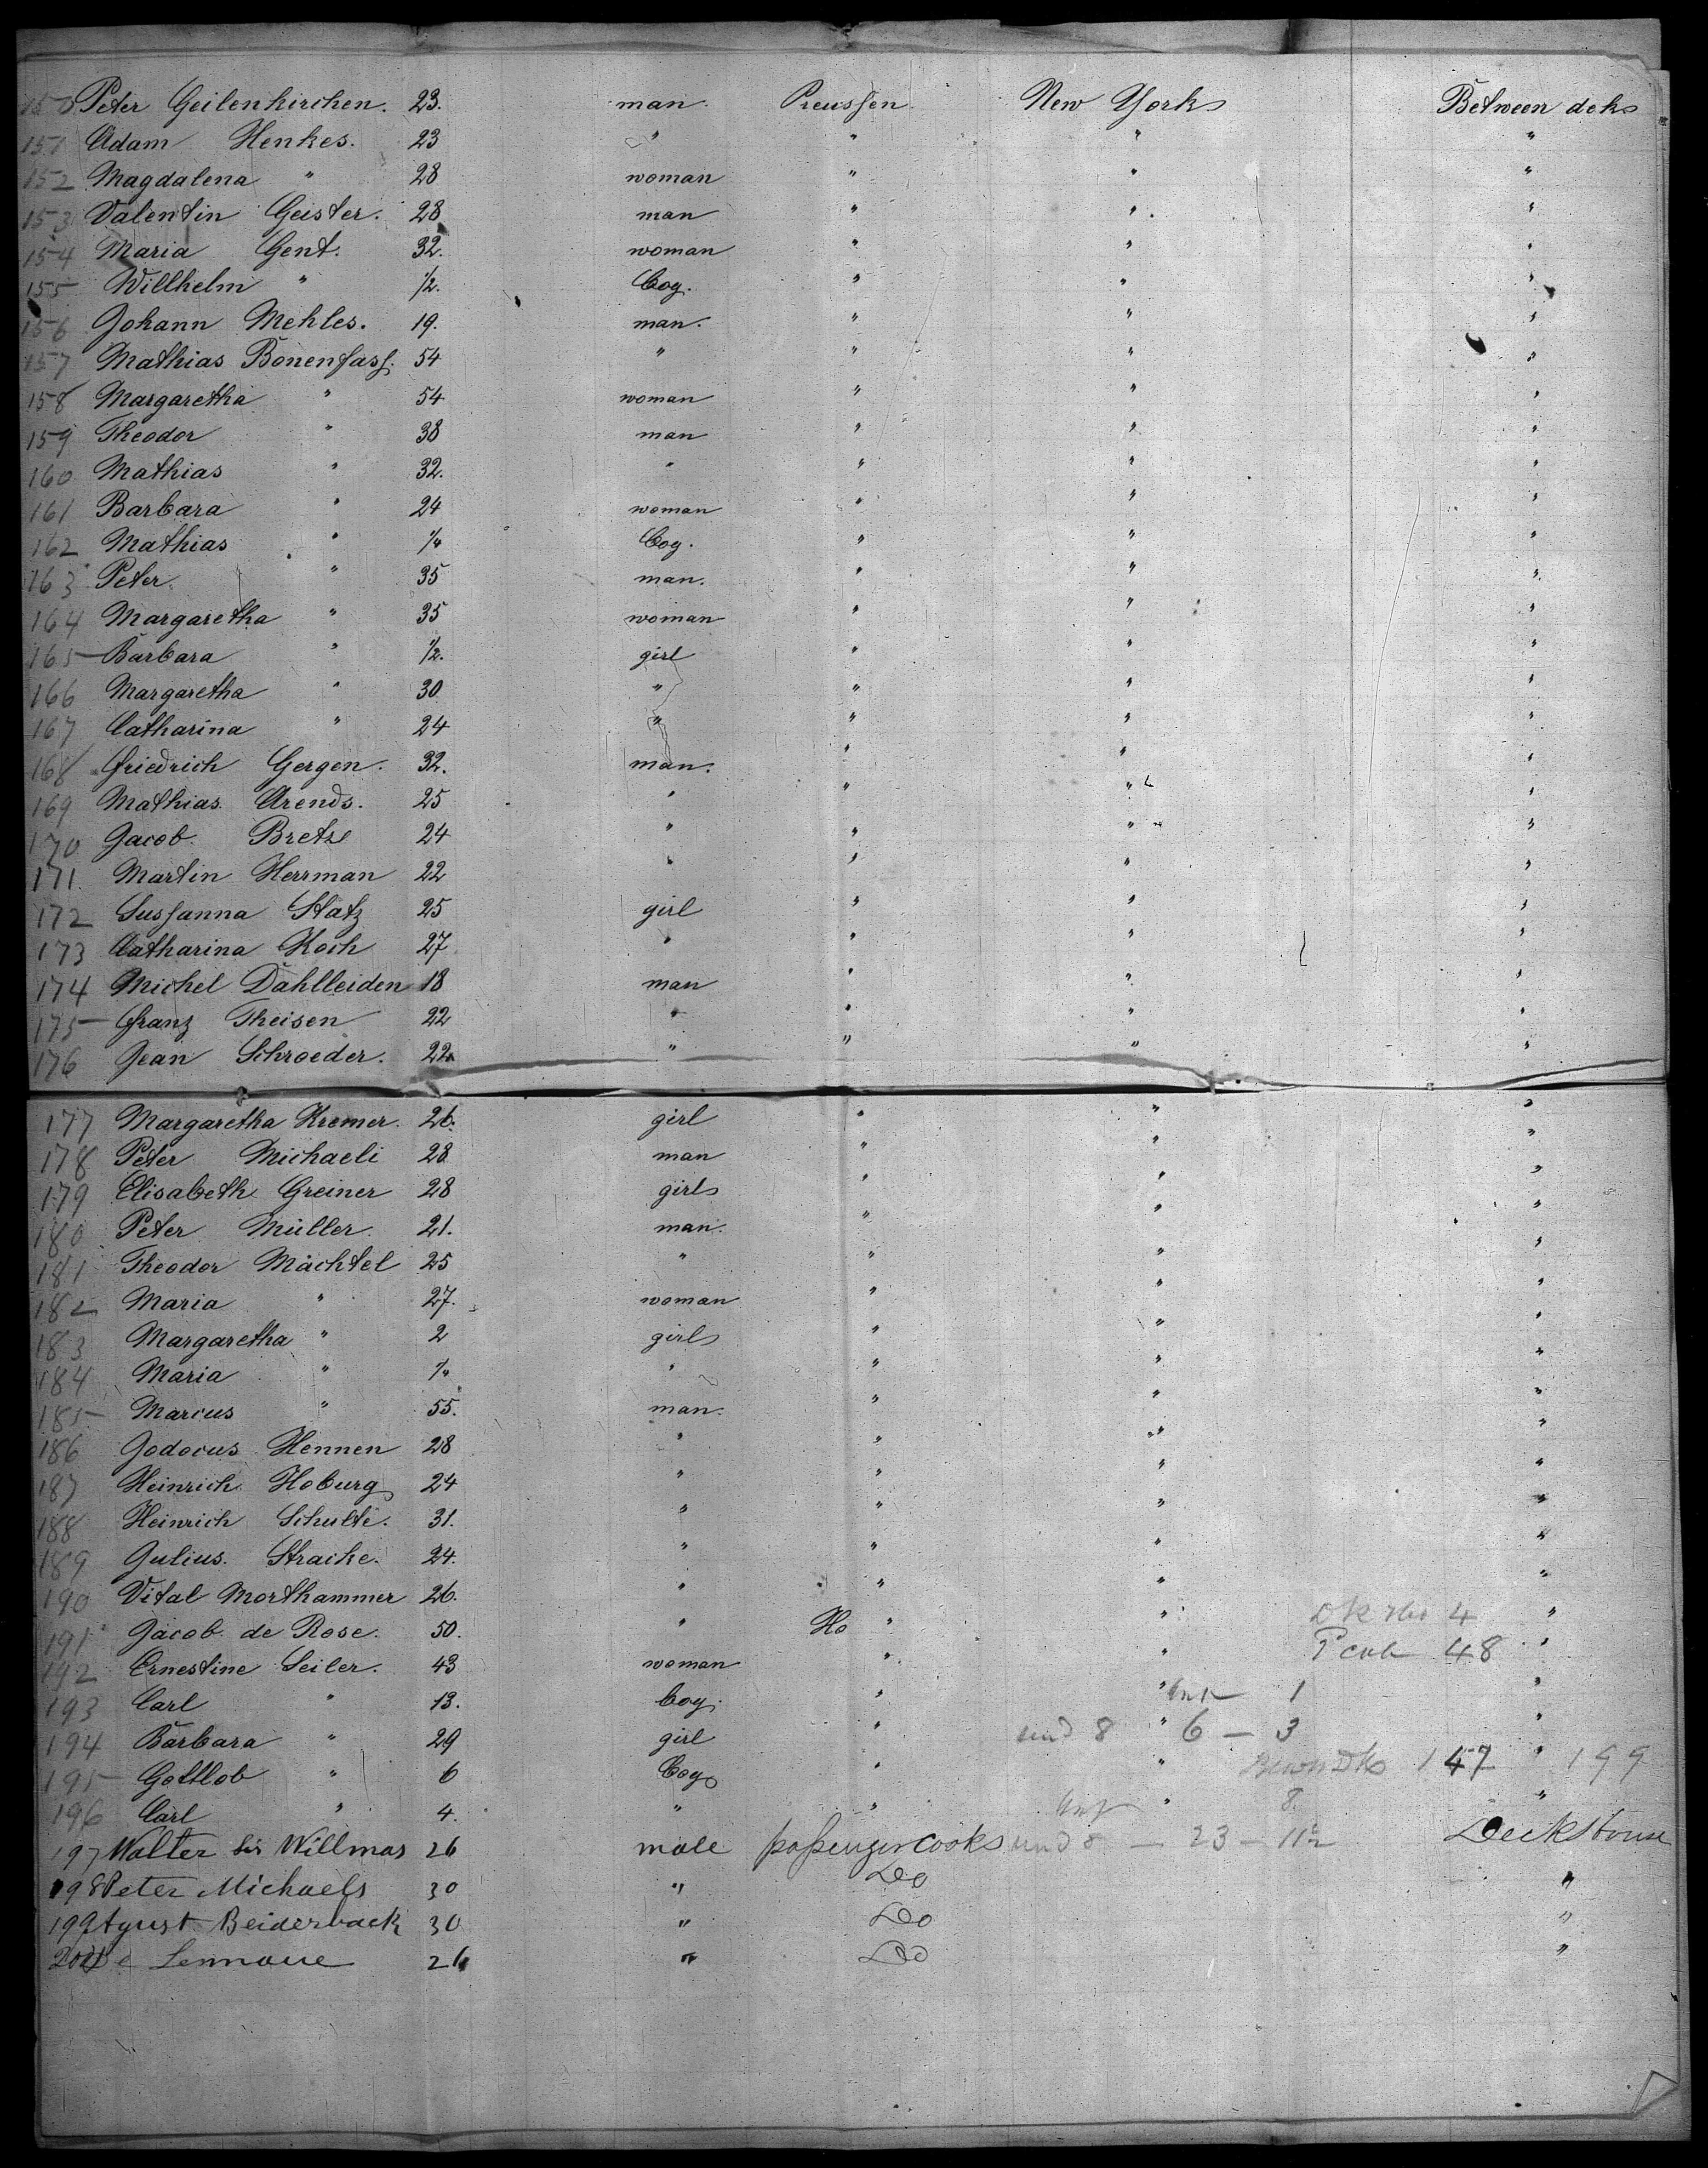 150 Peter Geilenkirchen. 23. man. Preussen. New York Between deks
151 Adam Henkes. 23 " " " "
152 Magdalena " 28 woman " " "
153 Valentin Geister. 28 man " " "
154 Maria Gent. 32. woman " " "
155 Willhelm " 1/2. boy. " " "
156 Johann Mehles. 19. man. " " "
157 Mathias Bonenfass. 54 " " " "
158 Margaretha " 54 woman " " "
159 Theodor " 38 man " " "
160 Mathias " 32. " " " "
161 Barbara " 24 woman " " "
162 Mathias " boy. " " "
163 Peter. " 35 man. " " "
164 Margaretha " 35 woman " " "
165 Barbara " 1/2. girl " " "
166 Margaretha " 30 " " " "
167 Catharina " 24 " " " "
168 Friedrich Gergen. 32. man. " " "
169 Mathias Arends. 25 " " " "
170 Jacob Bretz 24 " " " "
171. Martin Herrman 22 " " " "
172 Sussanna Statz 25 girl " " "
173 Catharina Koch 27 " " " "
174 Michel Dahlleiden 18 man " " "
175 Franz Theisen 22 " " " "
176 Jean Schroeder. 22 " " " "
177 Margaretha Kremer. 26. girl " " "
178 Peter Michaeli 28 man " " "
179 Elisabeth Greiner 28 girl " " "
180 Peter Müller 21. man. " " "
181 Theodor Mächtel 25 " " " "
182 Maria " 27. woman " " "
183 Margaretha " 2 girl " " "
184 Maria " " " " "
185 Marcus " 55. man. " " "
186 Jodocus Hennen 28 " " " "
187 Heinrich Hoburg 24 " " " "
188 Heinrich Schulte. 31. " " " "
189 Julius. Strache. 24. " " " "
190 Vital Morthammer 26. " " " "
191 Jacob de Rose. 50. " Ho " " 4 "
192 Ernestine Seiler. 43 woman " " P cab 48 "
193 Carl " 13. boy. " " Inf 1 "
194 Barbara " 29 girl " und 8 " 6 — 3 "
195 Gottlob " 6 boy " " 147 " 199
196 Carl " 4. " " Inf " 8. "
197 Walter Willmas 26 male passenger cooks und 8 — 23 — 11 1/2 Deck House
198 Peter Michaels 30 " Do "
199 Agust Beiderback 30 " Do "
200 Lennoue 26 " Do "